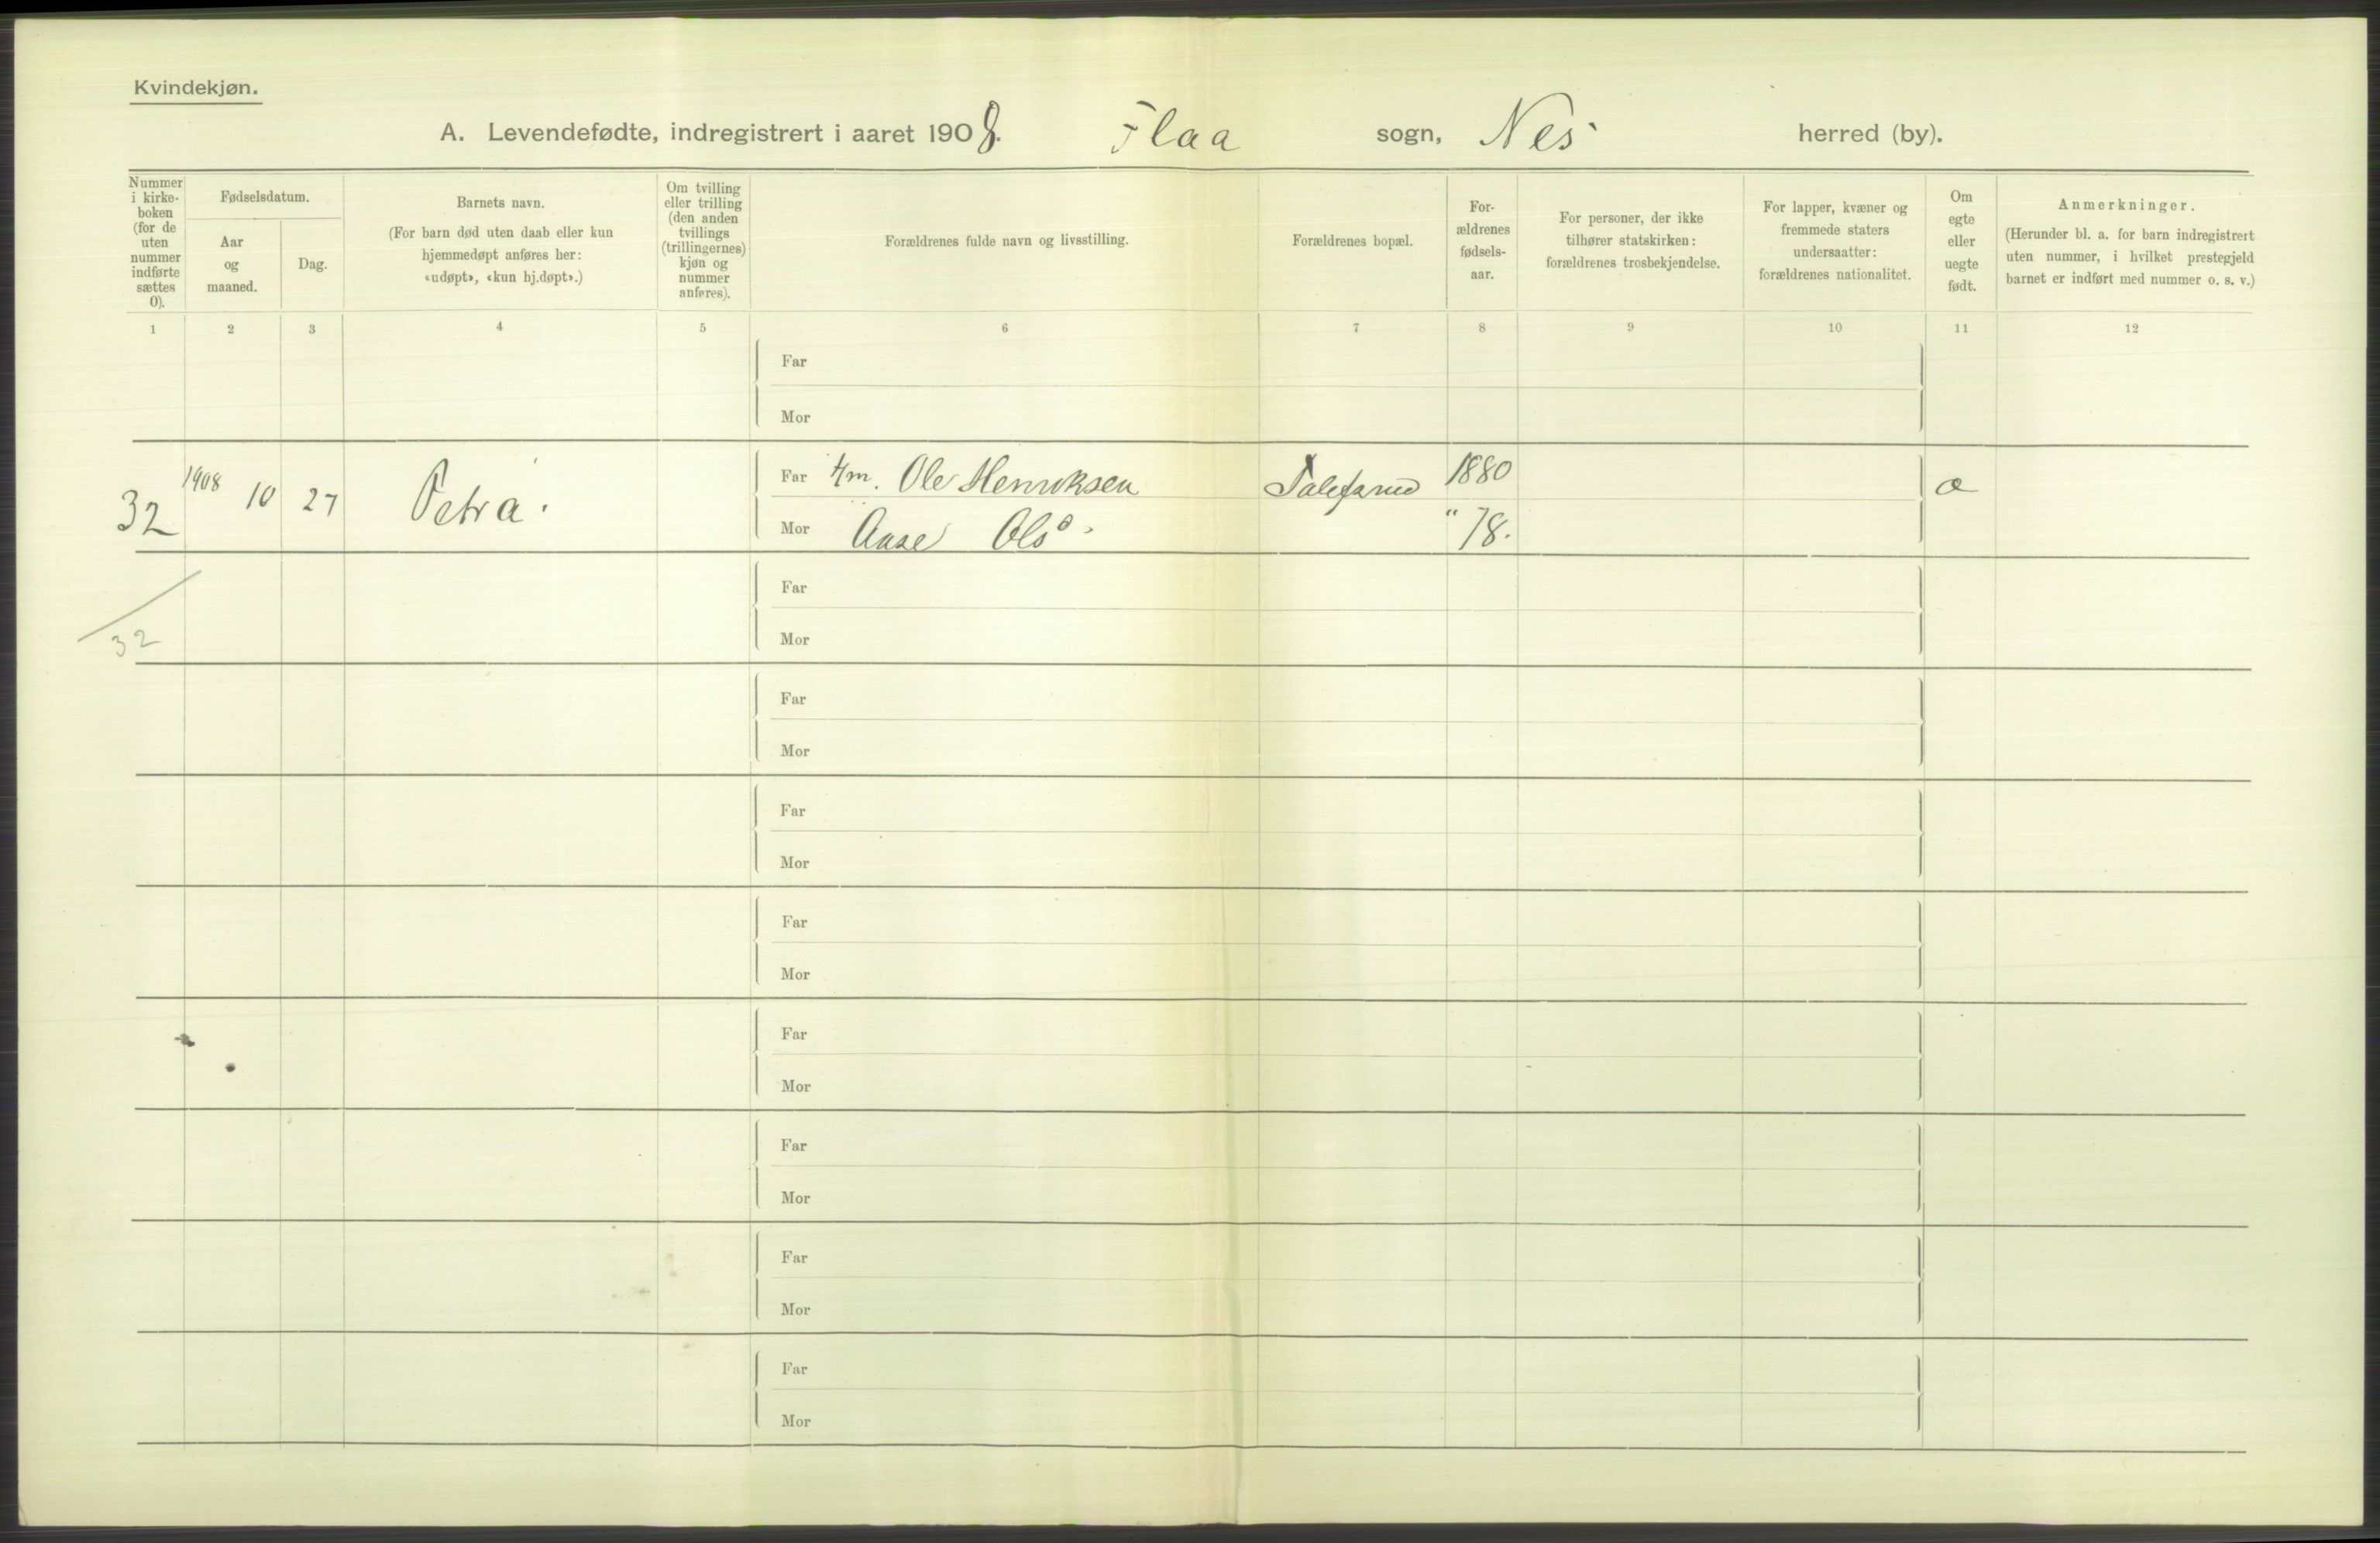 Kvindekjøn.
A. Levendefødte, indregistrert i aaret 1908. Flaa sogn, Nes herred (by).
Nummer i kirke-boken (for de uten nummer indførte sættes 0).
Fødselsdatum.
Aar og maaned.
Dag.
Barnets navn.
(For barn død uten daab eller kun hjemmedøpt anføres her: «udøpt», «kun hj.døpt».)
Om tvilling eller trilling (den anden tvillings (trillingernes) kjøn og nummer anføres).
Forældrenes fulde navn og livsstilling.
Forældrenes bopæl.
For-ældrenes fødsels-aar.
For personer, der ikke tilhører statskirken: forældrenes trosbekjendelse.
For lapper, kvæner og fremmede staters undersaatter: forældrenes nationalitet.
Om egte eller uegte født.
Anmerkninger.
(Herunder bl. a. for barn indregistrert uten nummer, i hvilket prestegjeld barnet er indført med nummer o. s. v.)
1 2 3 4 5 6 7 8 9 10 11 12
Far
Mor
32 1908 10 27 Petra. Far Ole Henriksen 1880
Mor Aase Ols " 78.
Far
32 Mor
Far
Mor
Far
Mor
Far
Mor
Far
Mor
Far
Mor
Far
Mor
Far
Mor